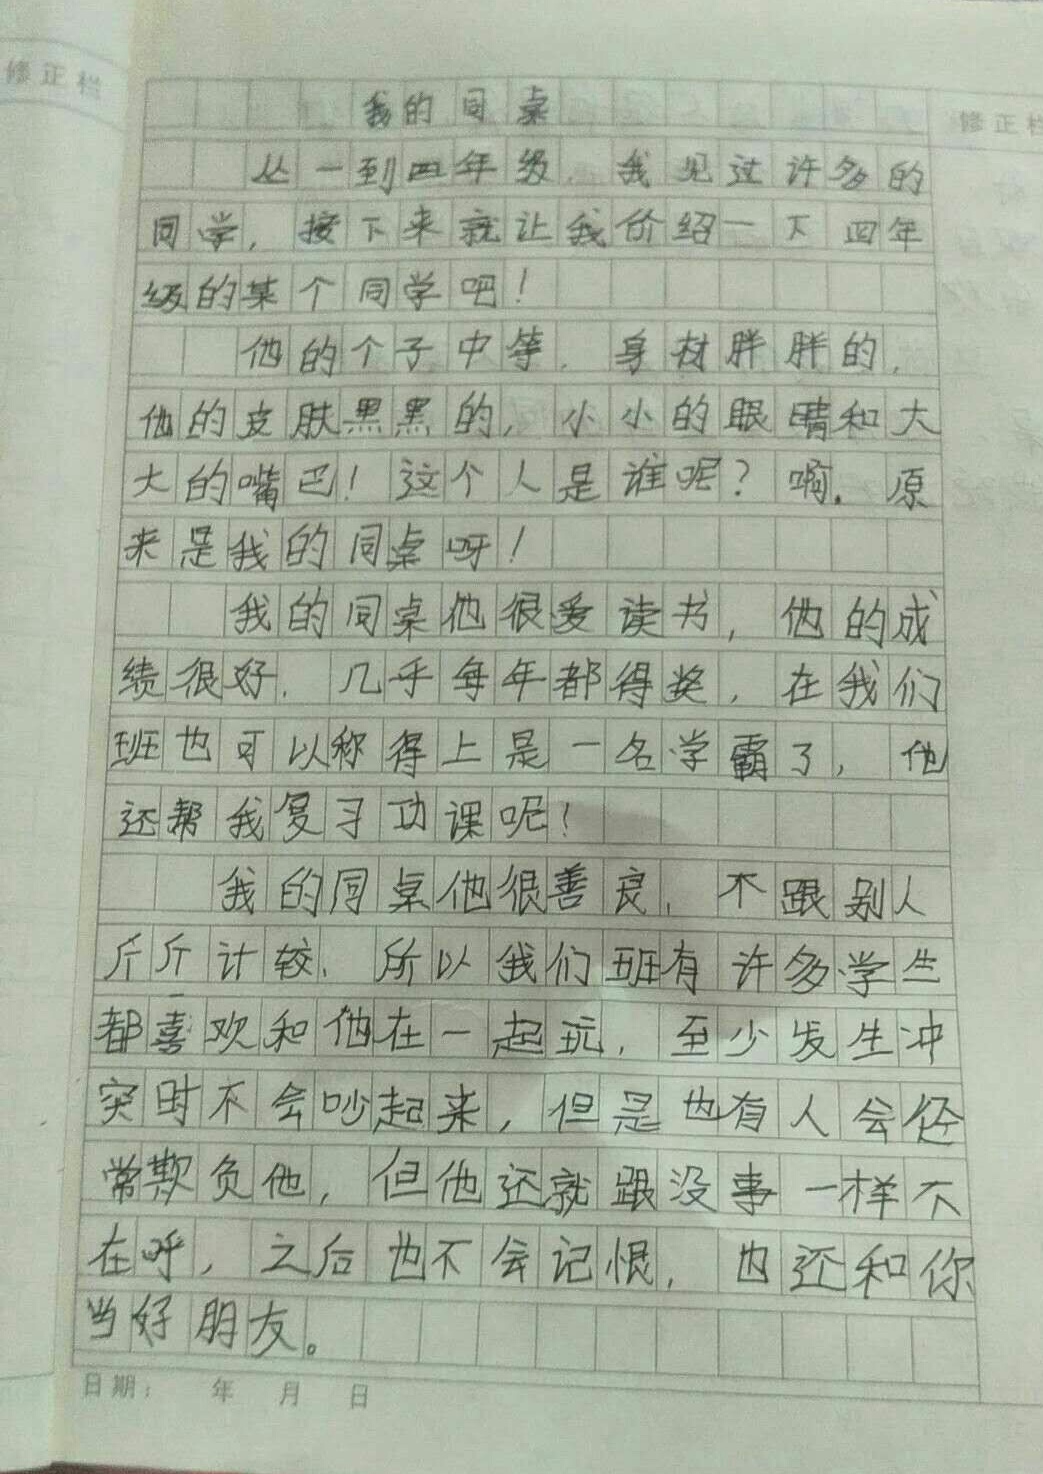 修正栏
修正栏
我的同桌
丛一到四年级，我见过许多的
同学，接下来就让我价绍一下四年
级的某个同学吧！
他的个子中等，身材胖胖的，
他的皮肤黑黑的，小小的眼睛和大
大的嘴巴！这个人是谁呢？啊，原
来是我的同桌呀！
我的同桌他很爱读书，他的成
绩很好，几乎每年都得奖，在我们
班也可以称得上是一名学霸了，他
还帮我复习功课呢！
我的同桌他很善良，不跟别人
斤斤计较，所以我们班有许多学生
都喜欢和他在一起玩，至少发生冲
突时不会吵起来，但是也有人会经
常欺负他，但他还就跟没事一样不
在呼，之后也不会记恨，也还和你
当好朋友。
日期： 年 月 日